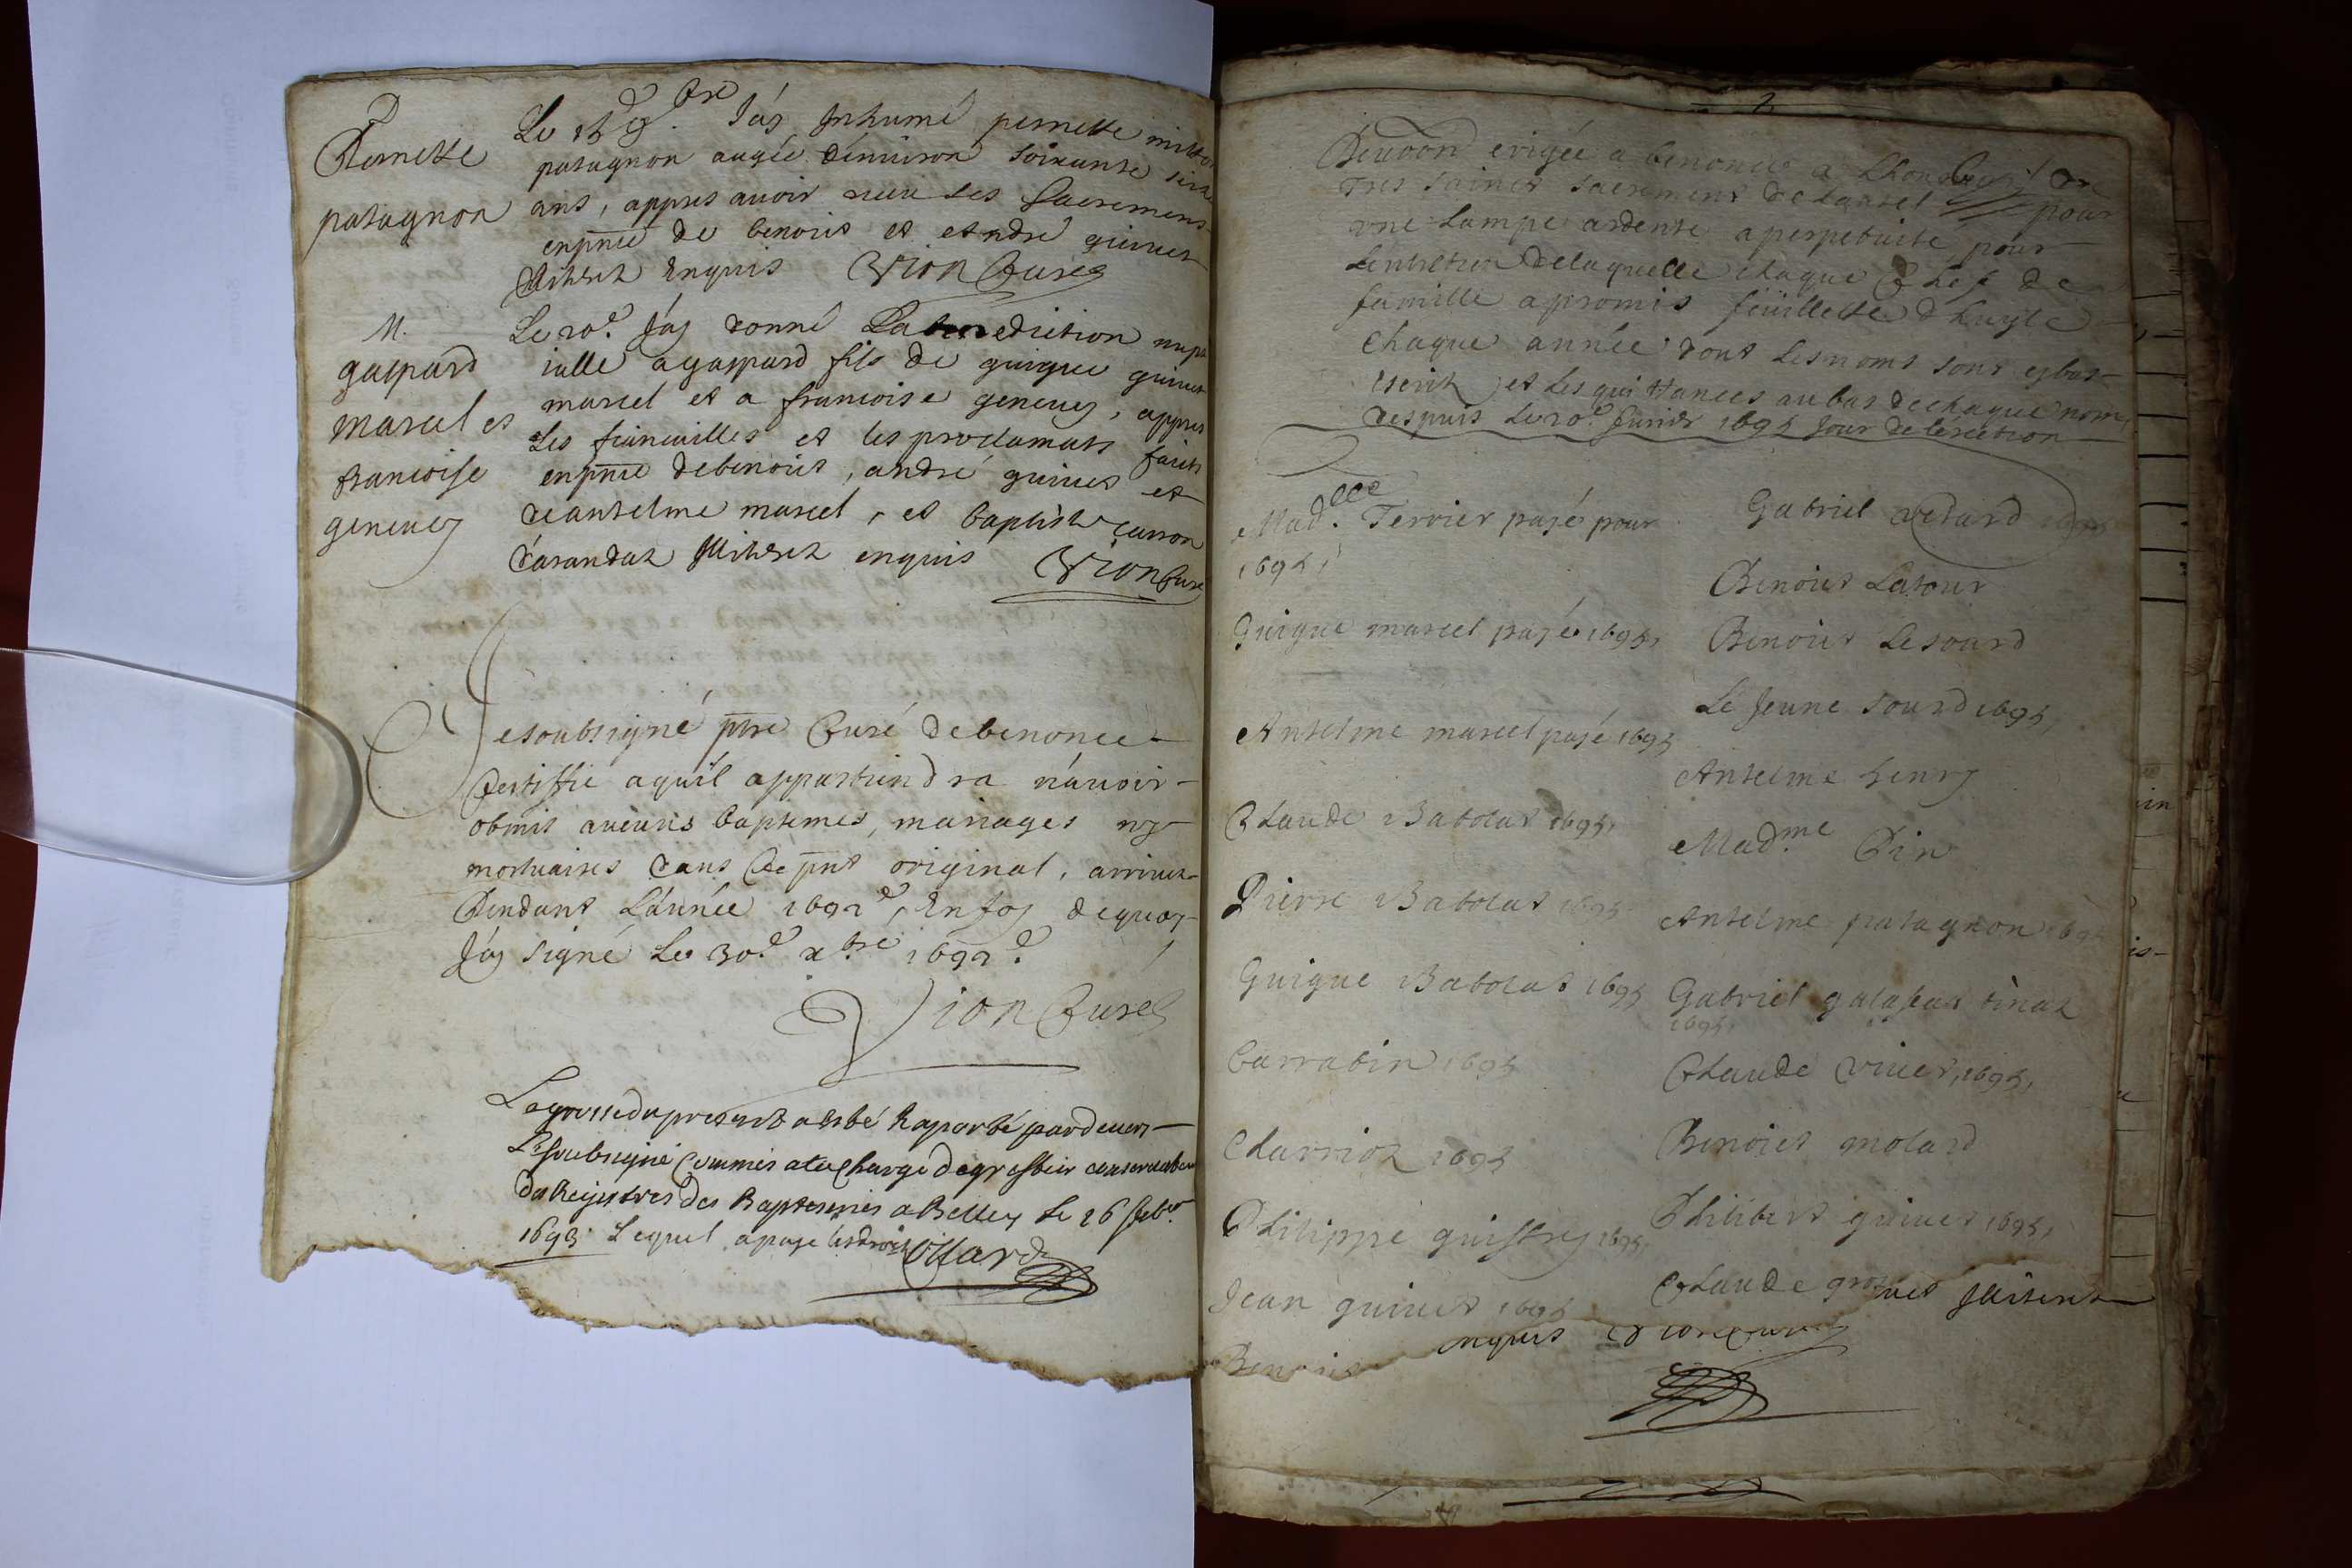 Pernette
patagnon
Le 15e 9bre J'ay Inhumé pernette
patagnon augée d'enuiron soixante
ans, appres auoir receu les Sacremens
enpnce de benoist et andré guinet
enquis Vion Curé
M.
gaspard
marcel et
francoise
geneuey
Le 20e J'ay donné La benediction nup
ialle a gaspard fils de guigue guinet
marcel et a francoise geneuey, appres
les fiancailles et les proclamats faicts
enpnce de benoist, andré guinet et
d'anselme marcel, et baptiste carron
enquis Vion Curé
Je soubsigné ptre Curé de benonce
Certiffie a qu'il appartiendra n'auoir
obmis aucuns baptemes, mariages ny
mortuaires dans Ce pnt original, arriuez
Pendant L'année 1692e, En foy de quoy
J'ay signé Le 30e xbre 1692e
Vion Curé
La grosse du present a esté Raportée pardeuers
Le soubsigné Commis a la charge de greffier conseruateur
des Registres des Baptesmes a Belley Le 26 febr
1693 Lequel a payé les droits
erigée a benonce a L'honneur du
Tres sainct sacrement de L'autel pour
vne Lampe ardente a perpetuité, pour
L'entretien de laquelle chaque Chef de
famille a promis feüillette d'huyle
Chaque année dont Les noms sont
escrits et Les quittances au bas de chaque nom
despuis Le 20e Januier 1695 Jour de l'erection
Madlle Terrier payé pour
1695,
Guigue marcel payé 1695,
Anselme marcel payé 1695
Claude Babolat 1695,
Pierre Babolat 1695
Guigue Babolat 1695
barratin 1695
Charrion 1695
Philippe guiffrey 1695,
Jean guinet 1695
Benoist
Gabriel 1695
Benoist Latour
Benoist Le sourd
Le Jeune sourd 1695,
Anselme henry
Madme Pin
Anselme patagnon 1695
Gabriel
1695,
Claude viuet, 1695,
Benoist molard
Philibert guinet 1695,
Claude
enquis Vion Curé